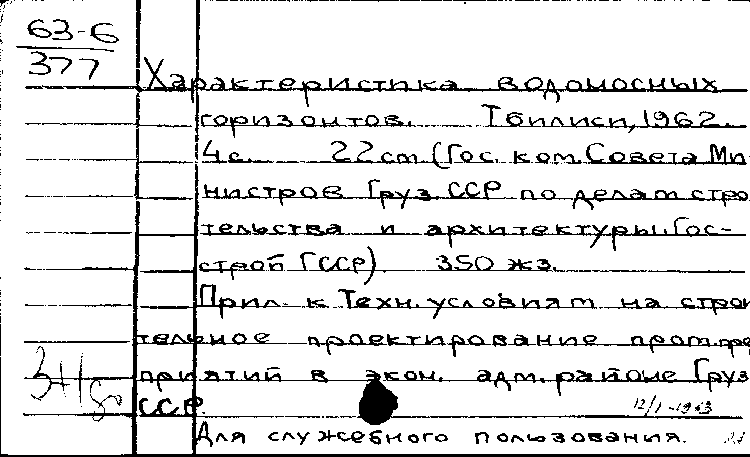 63-6
377
Характеристика водоносных
горизонтов. Тбилиси, 1962.
4 с. 22 см. (Гос. ком. Совета Ми-
нистров Груз. ССР по делам строи
тельства и архитектуры. Гос-
строй ГССР) 350 экз.
Прил. к Техн. условиям на строи
тельное проектирование пром. пре
приятий в экон. адм. районе Груз
ССР.
12/I-1963
Для служебного пользования.